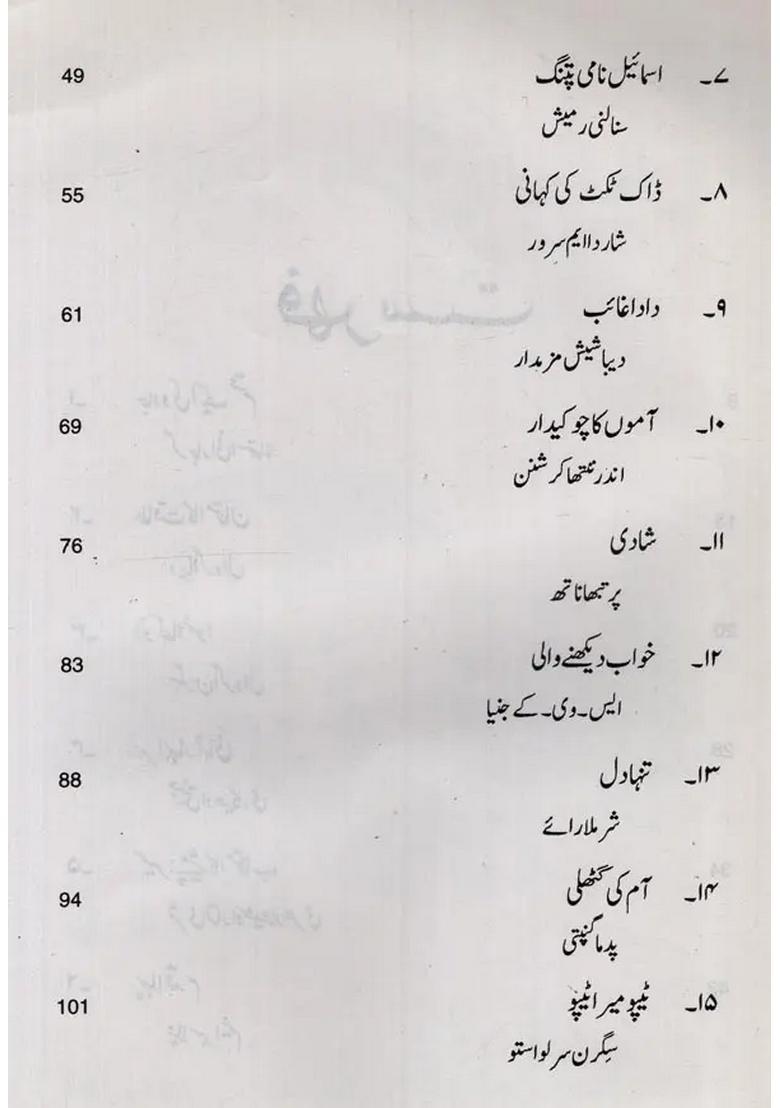 ۷۔ اسمائیل نامی پتنگ 49
سنالنی رمیش
۸۔ ڈاک ٹکٹ کی کہانی 55
شاردا ایم سرور
۹۔ دادا غائب 61
دیباشیش مزمدار
۱۰۔ آموں کا چوکیدار 69
اندر ننتھا کرشنن
۱۱۔ شادی 76
پرتبھا ناتھ
۱۲۔ خواب دیکھنے والی 83
ایس۔وی۔کے جنیا
۱۳۔ تنہا دل 88
شرملا رائے
۱۴۔ آم کی گٹھلی 94
پدما گنپتی
۱۵۔ ٹیپو میرا ٹیپو 101
سِگرن سرلواستو
فہرست